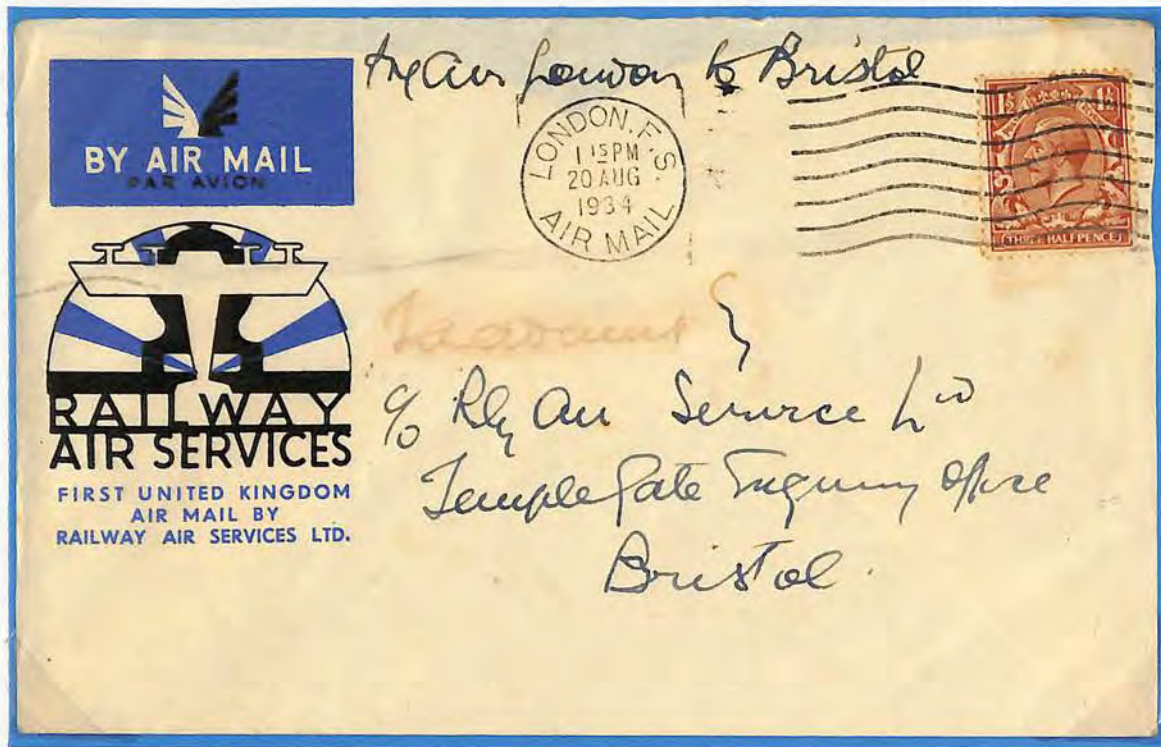 By Air London to Bristol
BY AIR MAIL
PAR AVION
LONDON. F.S.
1 15 PM
20 AUG
1934
AIR MAIL
1½ 1½
THREE HALFPENCE
RAILWAY
AIR SERVICES
FIRST UNITED KINGDOM
AIR MAIL BY
RAILWAY AIR SERVICES LTD.
c/o Rly Air Service Ltd
Temple Gate Enquiry Office
Bristol.